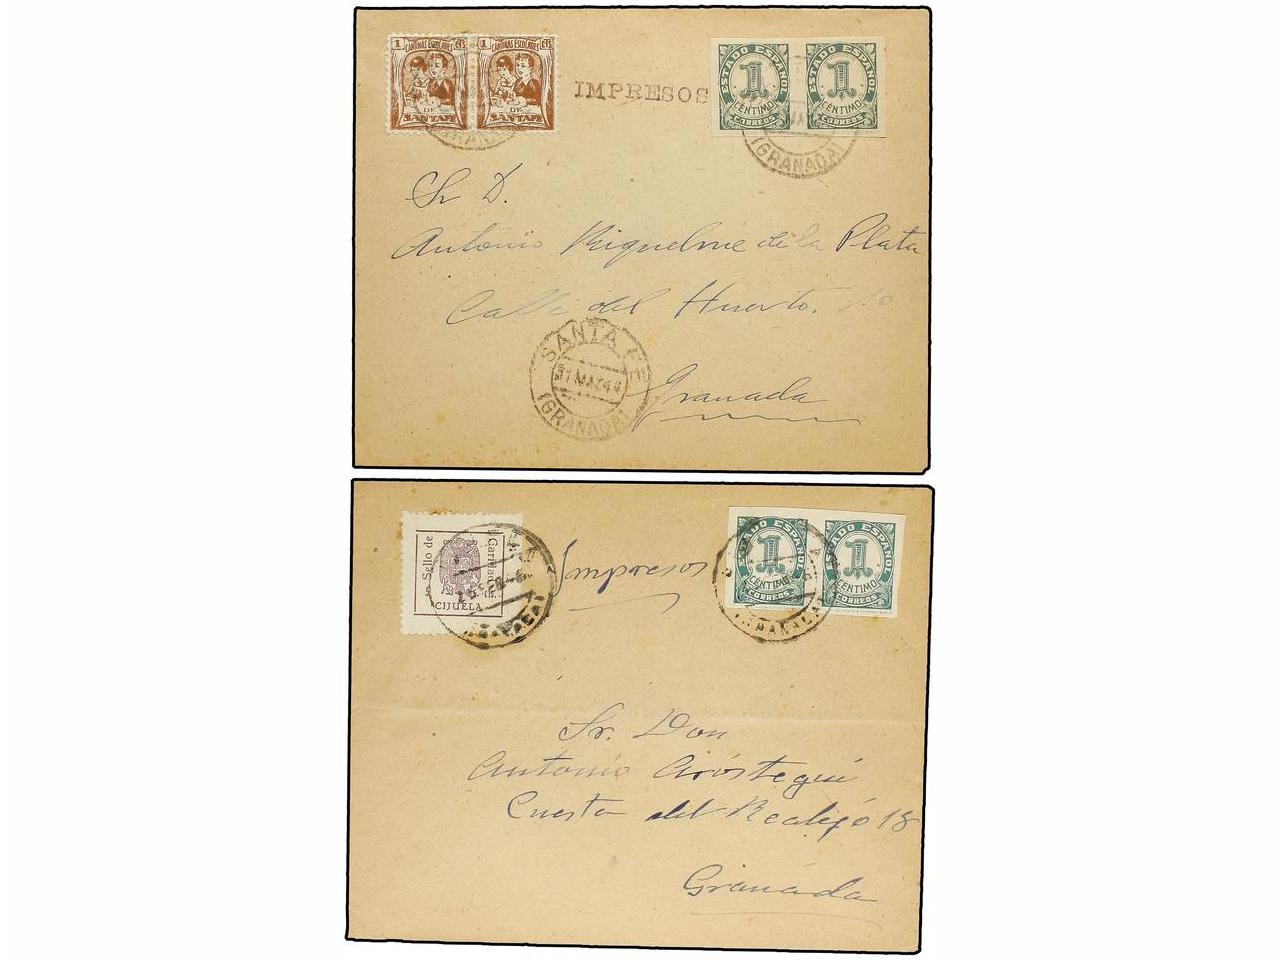 1 CANTINAS ESCOLARES CTS.
DE
SANTAFE
1 CANTINAS ESCOLARES CTS.
DE
SANTAFE
IMPRESOS
ESTADO ESPAÑOL
1
CENTIMO
CORREOS
ESTADO ESPAÑOL
1
CENTIMO
CORREOS
(GRANADA)
Sr. D.
Antonio Riquelme de la Plata
Calle del Huerto, 10
SANTA FE
MAY
(GRANADA)
Granada
Sello de
CIJUELA
Impresos
ESTADO ESPAÑOL
1
CENTIMO
CORREOS
ESTADO ESPAÑOL
1
CENTIMO
CORREOS
Sr. Don
Antonio Aróstegui
Cuesta del Realejo 18
Granada